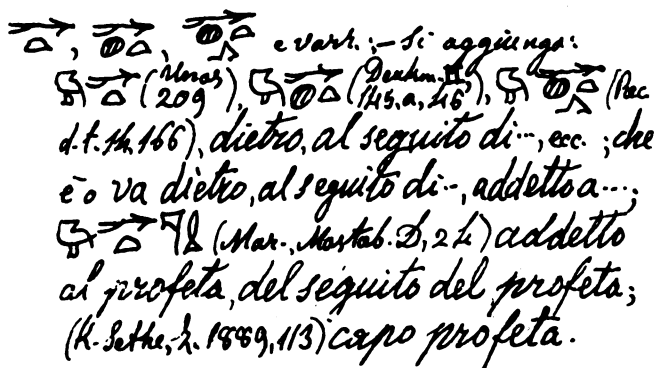 , , e varr.; - Si aggiunga:
(Unas 209), (Denkm. II, 145, a, 46), (Rec.
d. t. 14, 166), dietro, al seguito di..., ecc.; che
è o va dietro, al seguito di.., addetto a...;
(Mar., Mastab. D, 24) addetto
al profeta, del seguito del profeta;
(K. Sethe, Z. 1889, 113) capo profeta.